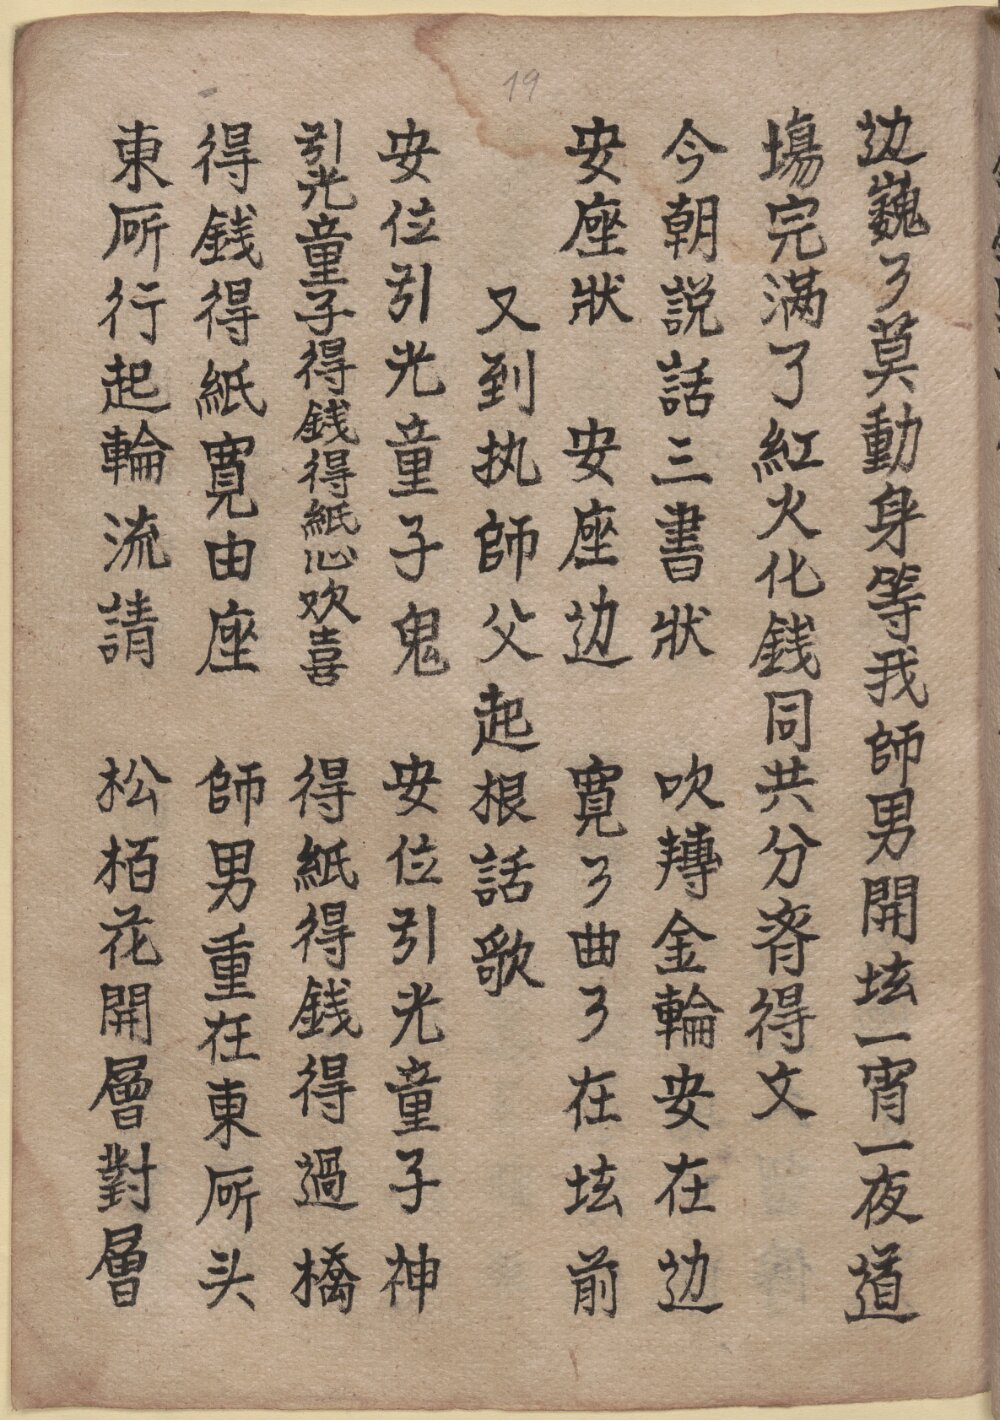 19
边巍了莫動身等我師男開坛一宵一夜道
塲完滿了紅火化銭同共分齊得文
今朝説話三書狀 吹轉金輪安在边
安座狀 安座边 寬了曲了在坛前
又到执師父起根話歌
安位引光童子鬼 安位引光童子神
引光童子得銭得紙心欢喜 得紙得銭得過橋
得銭得紙寬由座 師男重在東𠩄头
東𠩄行起輪流請 松栢花開層對層